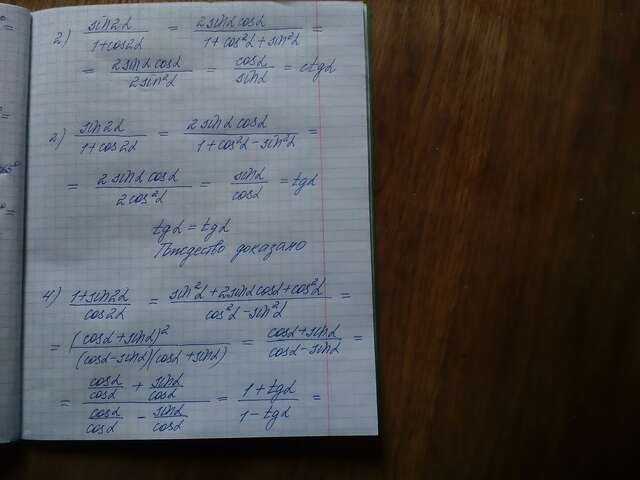 2) sin2α/(1+cos2α) = 2sinα cosα/(1+cos²α+sin²α) =
= 2sinα cosα/(2sin²α) = cosα/sinα = ctgα
2) sin2α/(1+cos2α) = 2sinα cosα/(1+cos²α-sin²α) =
= 2sinα cosα/(2cos²α) = sinα/cosα = tgα
tgα = tgα
Тождество доказано
4) (1+sin2α)/cos2α = (sin²α+2sinα cosα+cos²α)/(cos²α-sin²α) =
= (cosα+sinα)²/((cosα-sinα)(cosα+sinα)) = (cosα+sinα)/(cosα-sinα) =
= (cosα/cosα + sinα/cosα)/(cosα/cosα - sinα/cosα) = (1+tgα)/(1-tgα) =